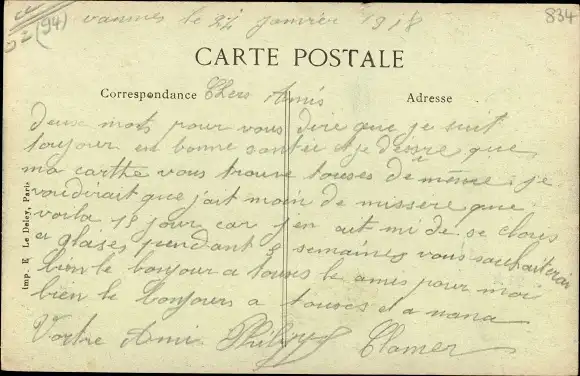 (94)
834
vannes le 24 janvier 1918
CARTE POSTALE
Correspondance
Adresse
Chers Amis
deuse mots pour vous dire que je suit
toujour en bonne santée et je desire que
ma carthe vous trouve touses de même. je
voudirait que j'ait moin de missere que
voila 15 jour car j'en ait mi de se
et pendant 8 semaines vous souhaiterai
bien le bonjour a touses le amis pour moi
bien le bonjours a touses et a nana
Vortre Ami
Imp. E Le Deley, Paris